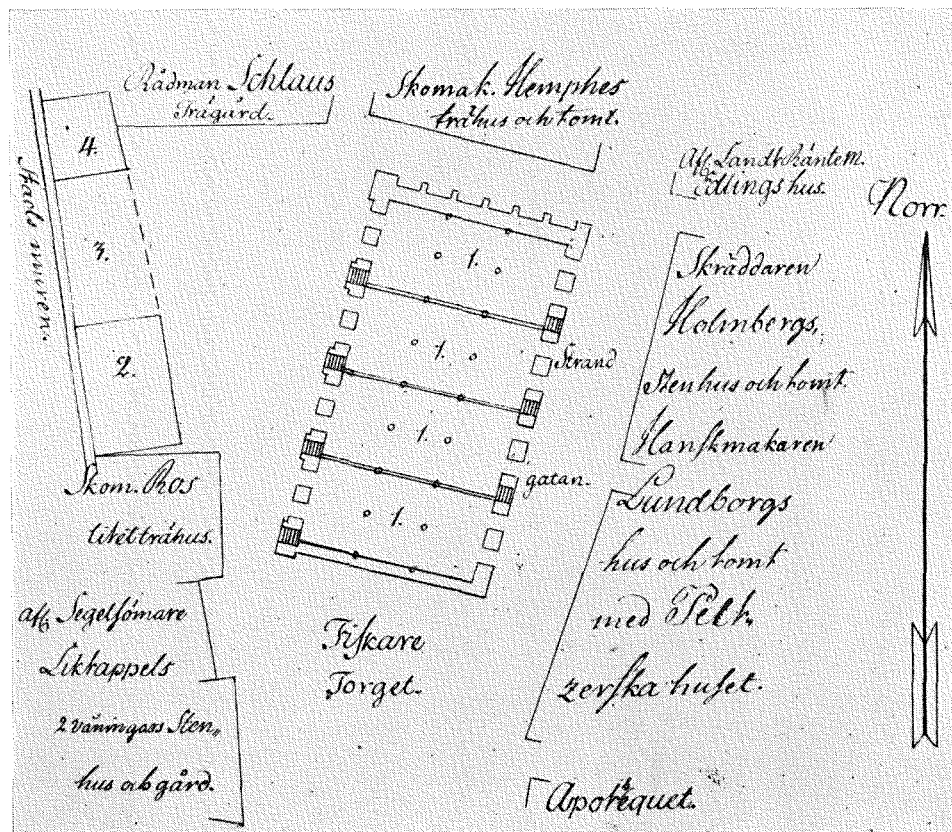 Rådman Schlaus
Trägård.
Skomak. Hemphes
trähus och tomt.
Afl. Landt Räntem.
Edlings hus.
Norr.
4.
3.
2.
Stads muren.
1.
1.
1.
1.
Strand
gatan.
Skräddaren
Holmbergs,
Stenhus och tomt.
Hanskmakaren
Lundborgs
hus och tomt
med Peltr.
zerska huset.
Skom. Ros
litet trähus.
afl. Segelsömare
Liktappels
2 vånингars Sten„
hus och gård.
Fiskare
Torget.
Apotequet.